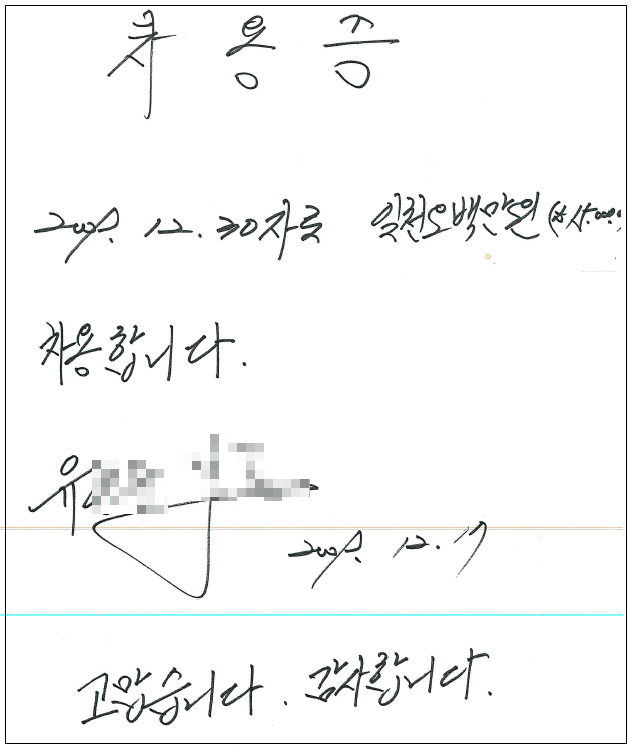 차용증
2009. 12. 30자로 일천오백만원
차용합니다.
유
2009. 12. 17
고맙습니다. 감사합니다.